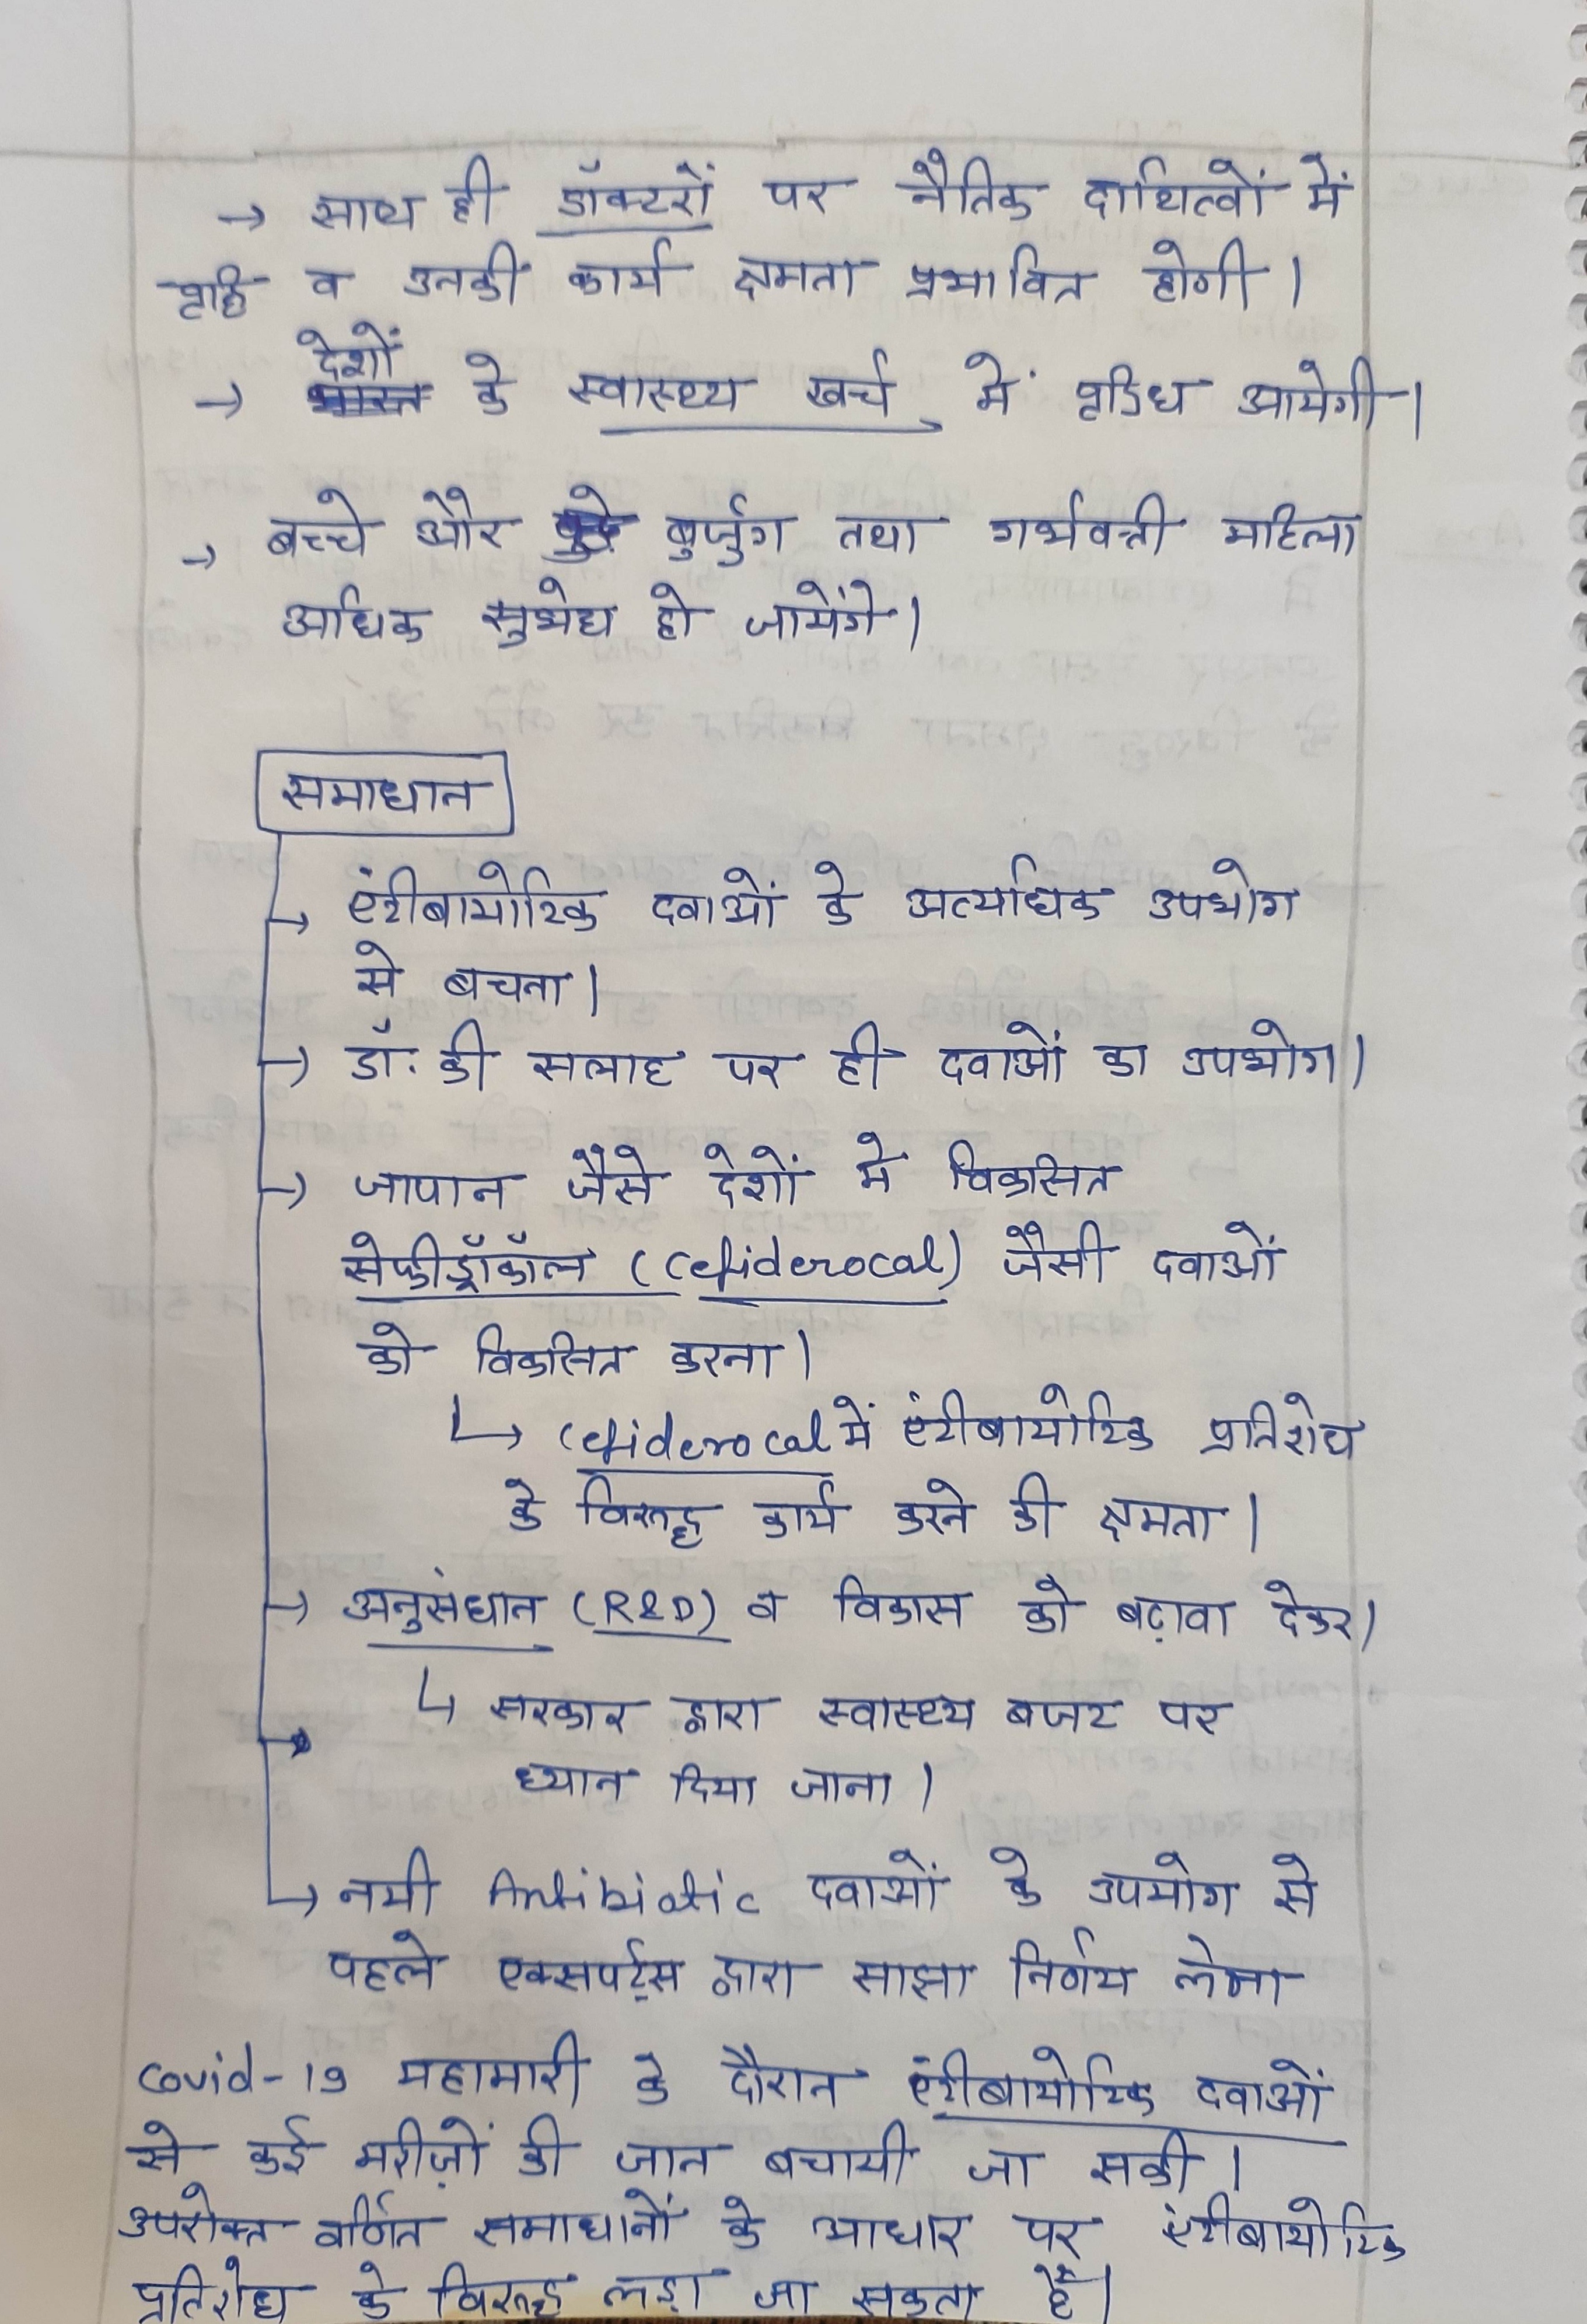 → साथ ही डॉक्टरों पर नैतिक दायित्वों में
वृद्धि व उनकी कार्य क्षमता प्रभावित होगी।
देशों
→ भारत के स्वास्थ्य खर्च में वृद्धि आयेगी।
→ बच्चे और बुर्जुग तथा गर्भवती महिला
अधिक सुभेद्य हो जायेंगे।
समाधान
→ एंटीबायोटिक दवाओं के अत्यधिक उपभोग
से बचना।
→ डॉ. की सलाह पर ही दवाओं का उपभोग।
→ जापान जैसे देशों में विकसित
सेफीड्रॉकॉल (Cefiderocal) जैसी दवाओं
को विकसित करना।
↳ Cefiderocal में एंटीबायोटिक प्रतिरोध
के विरुद्ध कार्य करने की क्षमता।
→ अनुसंधान (R&D) व विकास को बढ़ावा देकर।
↳ सरकार द्वारा स्वास्थ्य बजट पर
ध्यान दिया जाना।
→ नयी Antibiotic दवाओं के उपयोग से
पहले एक्सपर्ट्स द्वारा साझा निर्णय लेना
Covid-19 महामारी के दौरान एंटीबायोटिक दवाओं
से कई मरीज़ों की जान बचायी जा सकी।
उपरोक्त वर्णित समाधानों के आधार पर एंटीबायोटिक
प्रतिरोध के विरुद्ध लड़ा जा सकता है।